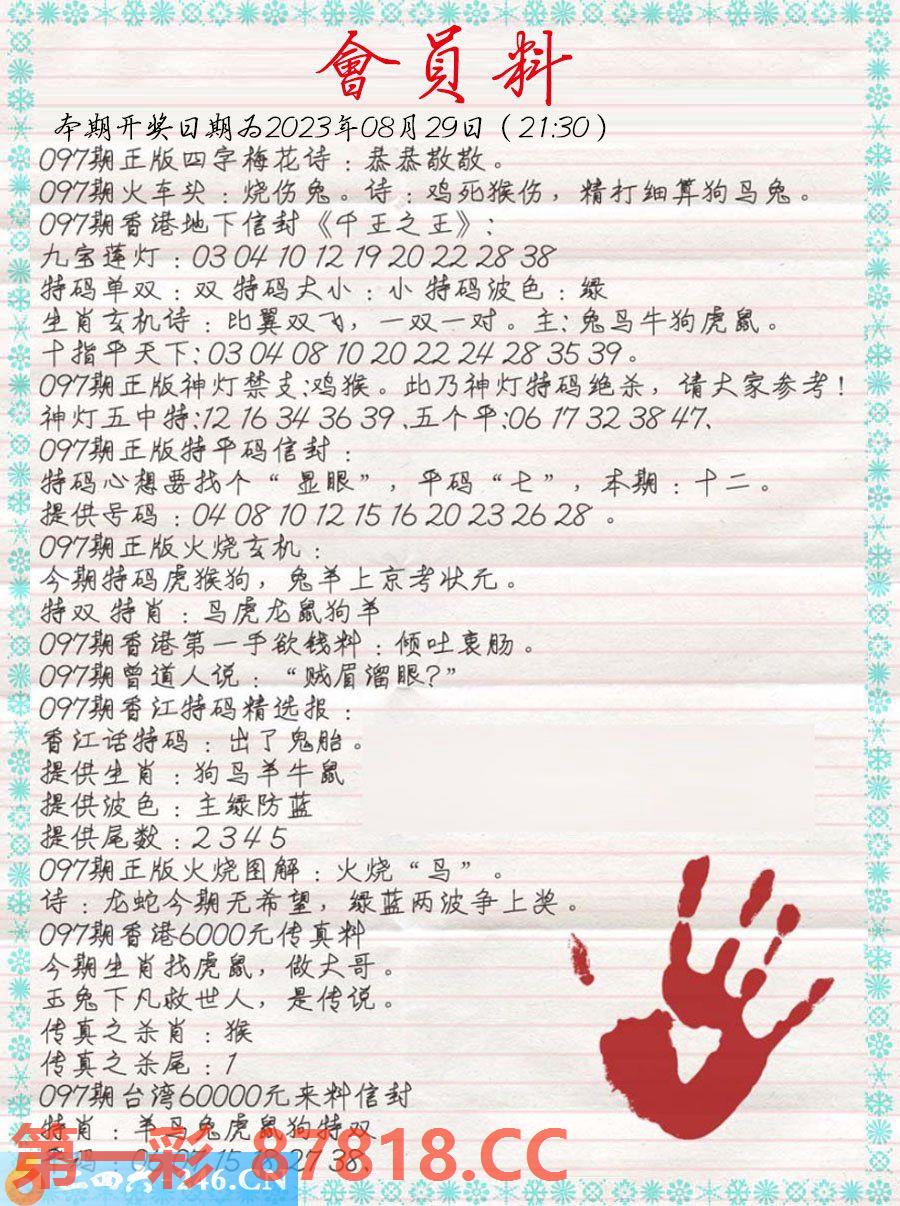 會員料
本期开奖日期为2023年08月29日（21:30）
097期正版四字梅花诗：恭恭敬敬。
097期火车头：烧伤兔。诗：鸡死猴伤，精打细算狗马兔。
097期香港地下信封《千王之王》:
九宝莲灯：03 04 10 12 19 20 22 28 38
特码单双：双 特码大小：小 特码波色：绿
生肖玄机诗：比翼双飞，一双一对。主:兔马牛狗虎鼠。
十指平天下:03 04 08 10 20 22 24 28 35 39。
097期正版神灯禁支:鸡猴。此乃神灯特码绝杀，请大家参考！
神灯五中特:12 16 34 36 39 、五个平:06 17 32 38 47、
097期正版特平码信封：
特码心想要找个“显眼”，平码“七”，本期：十二。
提供号码：04 08 10 12 15 16 20 23 26 28 。
097期正版火烧玄机：
今期特码虎猴狗，兔羊上京考状元。
特双 特肖：马虎龙鼠狗羊
097期香港第一手欲钱料：倾吐衷肠。
097期曾道人说：“贼眉溜眼?”
097期香江特码精选报：
香江话特码：出了鬼胎。
提供生肖：狗马羊牛鼠
提供波色：主绿防蓝
提供尾数：2 3 4 5
097期正版火烧图解：火烧“鸟”。
诗：龙蛇今期无希望，绿蓝两波争上奖。
097期香港6000元传真料
今期生肖找虎鼠，做大哥。
玉兔下凡救世人，是传说。
传真之杀肖：猴
传真之杀尾：1
097期台湾60000元来料信封
特肖：羊马兔虎鼠狗特双
15 18 27 38、
第一彩 87818.CC
二四六 246.CN